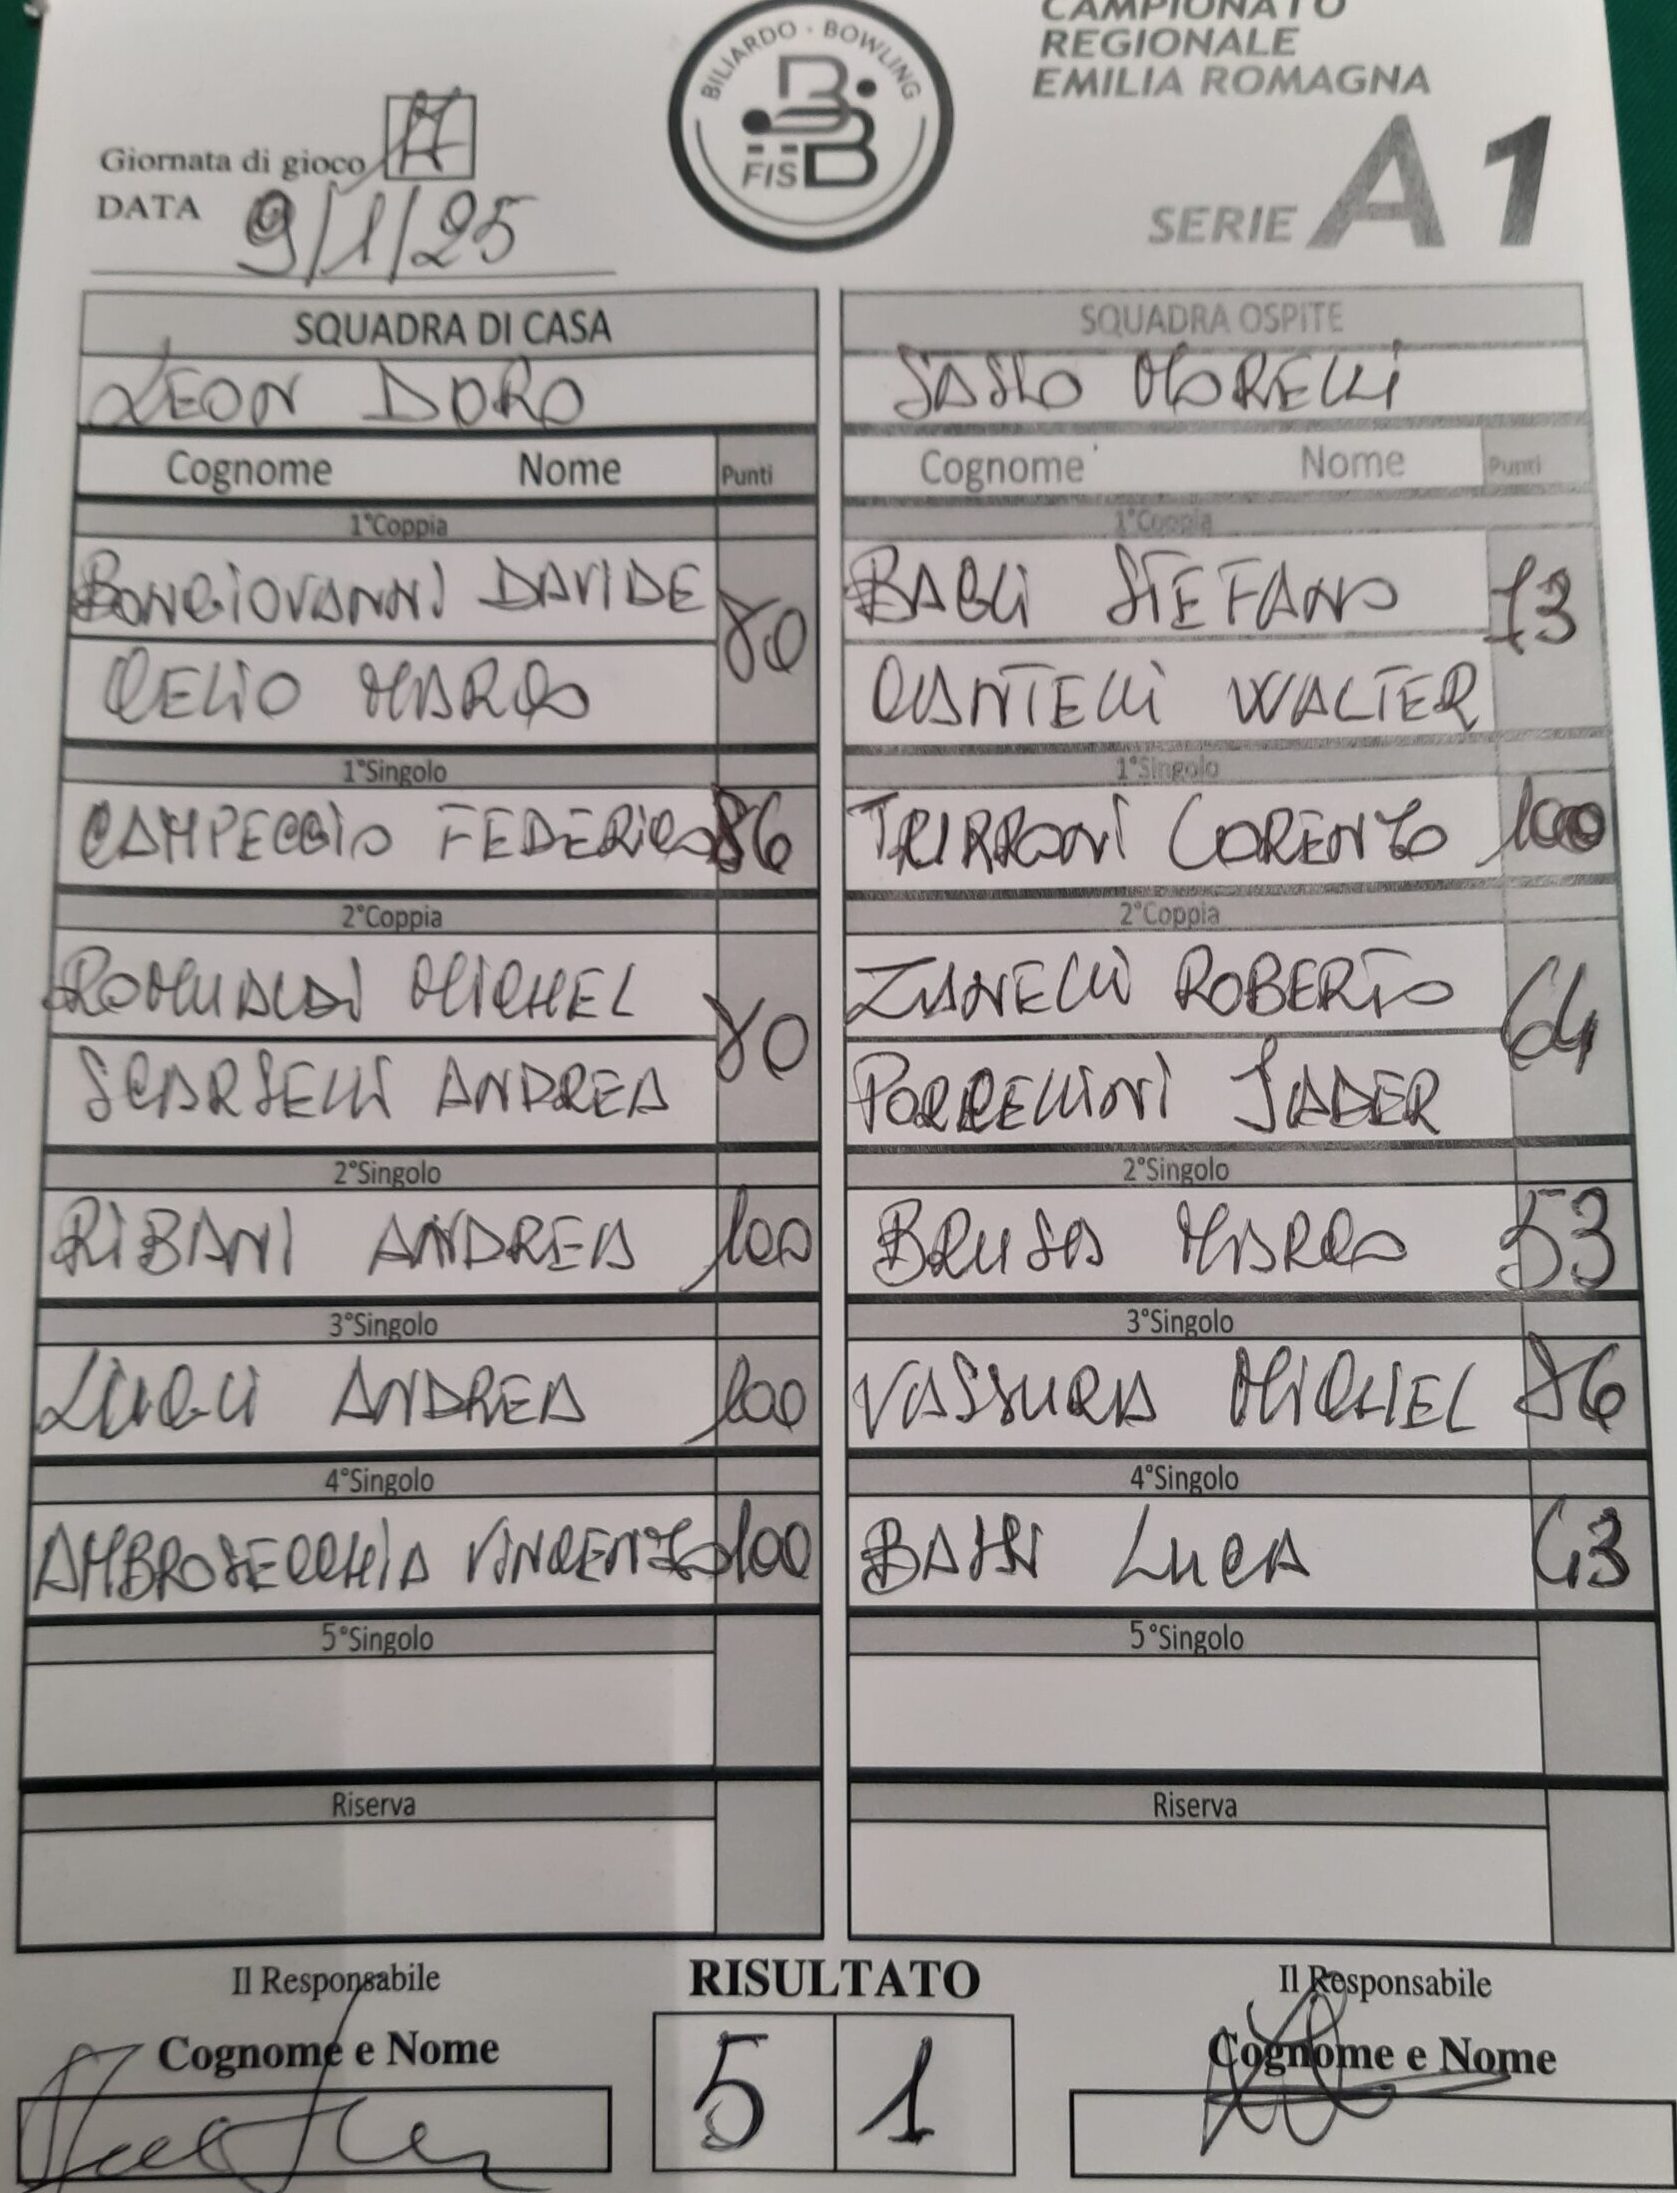 CAMPIONATO
REGIONALE
EMILIA ROMAGNA
SERIE A1
BILIARDO · BOWLING
FISBB
Giornata di gioco
DATA 9/1/25
SQUADRA DI CASA
LEON DORO
Cognome Nome Punti
1°Coppia
BONGIOVANNI DAVIDE 80
CELIO MARCO
1°Singolo
CAMPEGGIO FEDERICO 86
2°Coppia
ROMUALDI MICHEL 80
SCARSELLI ANDREA
2°Singolo
RIBANI ANDREA 100
3°Singolo
LUGLI ANDREA 100
4°Singolo
AMBROSECCHIA VINCENZO 100
5°Singolo
Riserva
SQUADRA OSPITE
SASSO MORELLI
Cognome Nome Punti
1°Coppia
BAGLI STEFANO 73
CANTELLI WALTER
1°Singolo
TRIRRONI LORENZO 100
2°Coppia
ZANELLI ROBERTO 64
PORCELLINI JADER
2°Singolo
BRUSA MARCO 53
3°Singolo
VASSURA MICHEL 86
4°Singolo
BASSI LUCA 43
5°Singolo
Riserva
Il Responsabile
Cognome e Nome
RISULTATO
5 1
Il Responsabile
Cognome e Nome